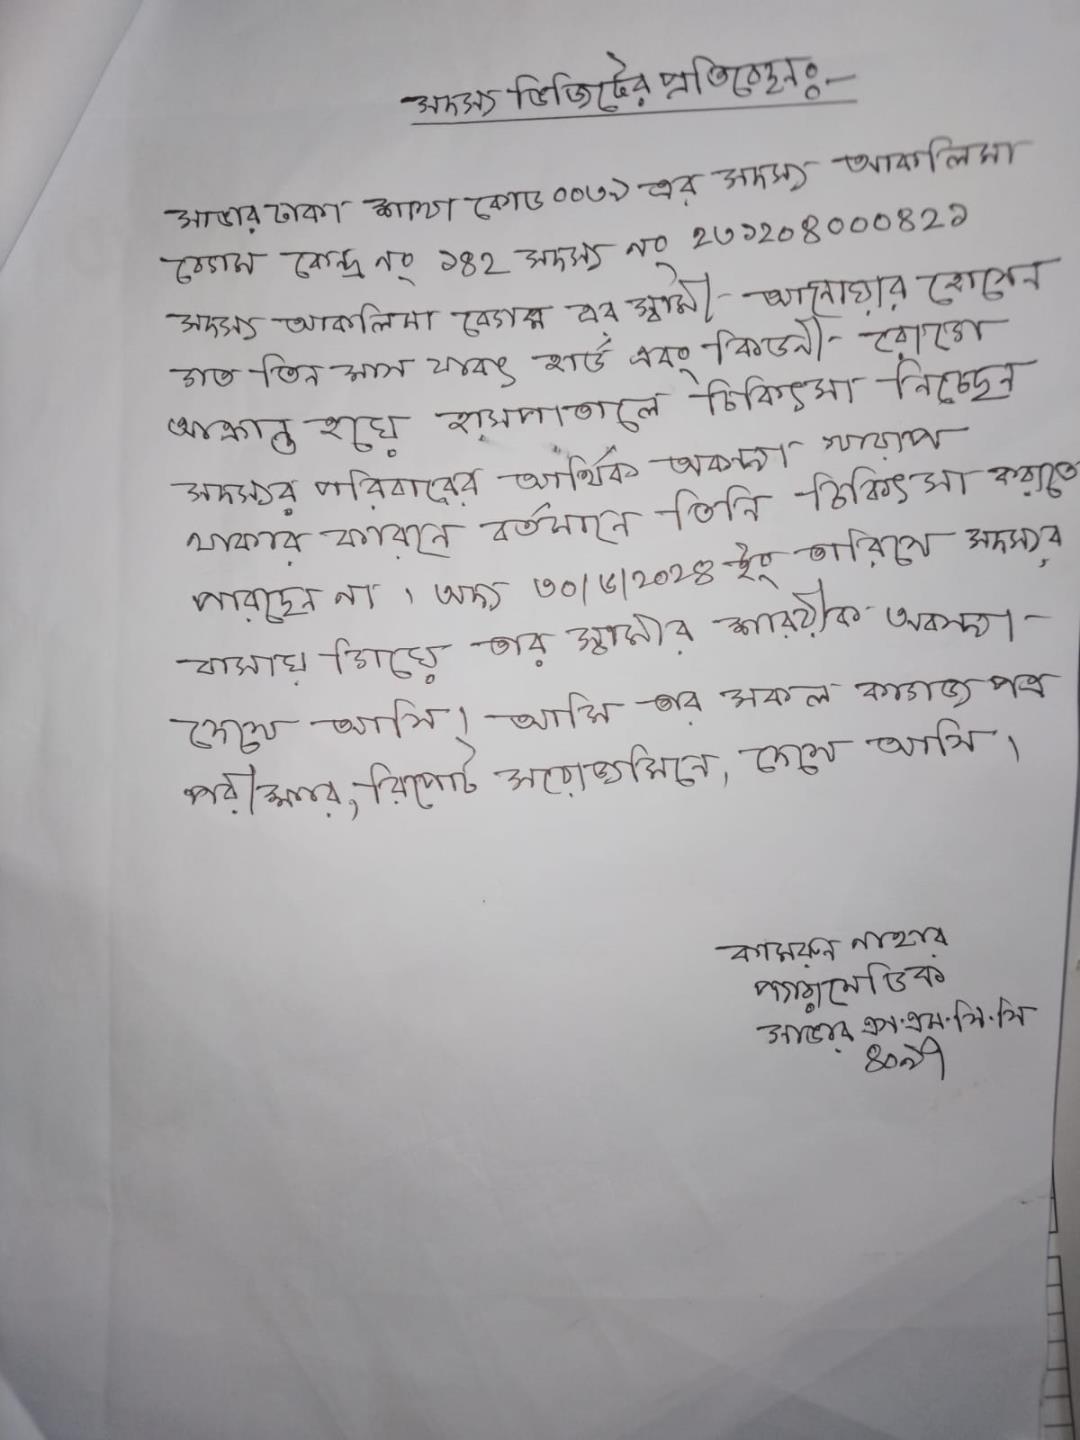 সদস্য ভিজিটের প্রতিবেদনঃ-
সাভার ঢাকা শাখা কোড ০০৩৯ এর সদস্য আকলিমা
বেগম কেন্দ্র নং ১৪২ সদস্য নং ২৩১২০৪০০০৪২১
সদস্য আকলিমা বেগম এর স্বামী- আনোয়ার হোসেন
গত তিন মাস যাবৎ হার্ট এবং কিডনী- রোগে
আক্রান্ত হয়ে হাসপাতালে চিকিৎসা নিচ্ছেন
সদস্যর পরিবারের আর্থিক অবস্থা খারাপ
থাকার কারনে বর্তমানে তিনি চিকিৎসা করাতে
পারছেন না। অদ্য ৩০/৬/২০২৪ ইং তারিখে সদস্যর
বাসায় গিয়ে তার স্বামীর শারীরীক অবস্থা-
দেখে আসি। আমি তার সকল কাগজ পত্র
পরীক্ষার, রিপোর্ট সরেজমিনে, দেখে আসি।
কামরুন নাহার
প্যারামেডিক
সাভার এস.এম.সি.সি